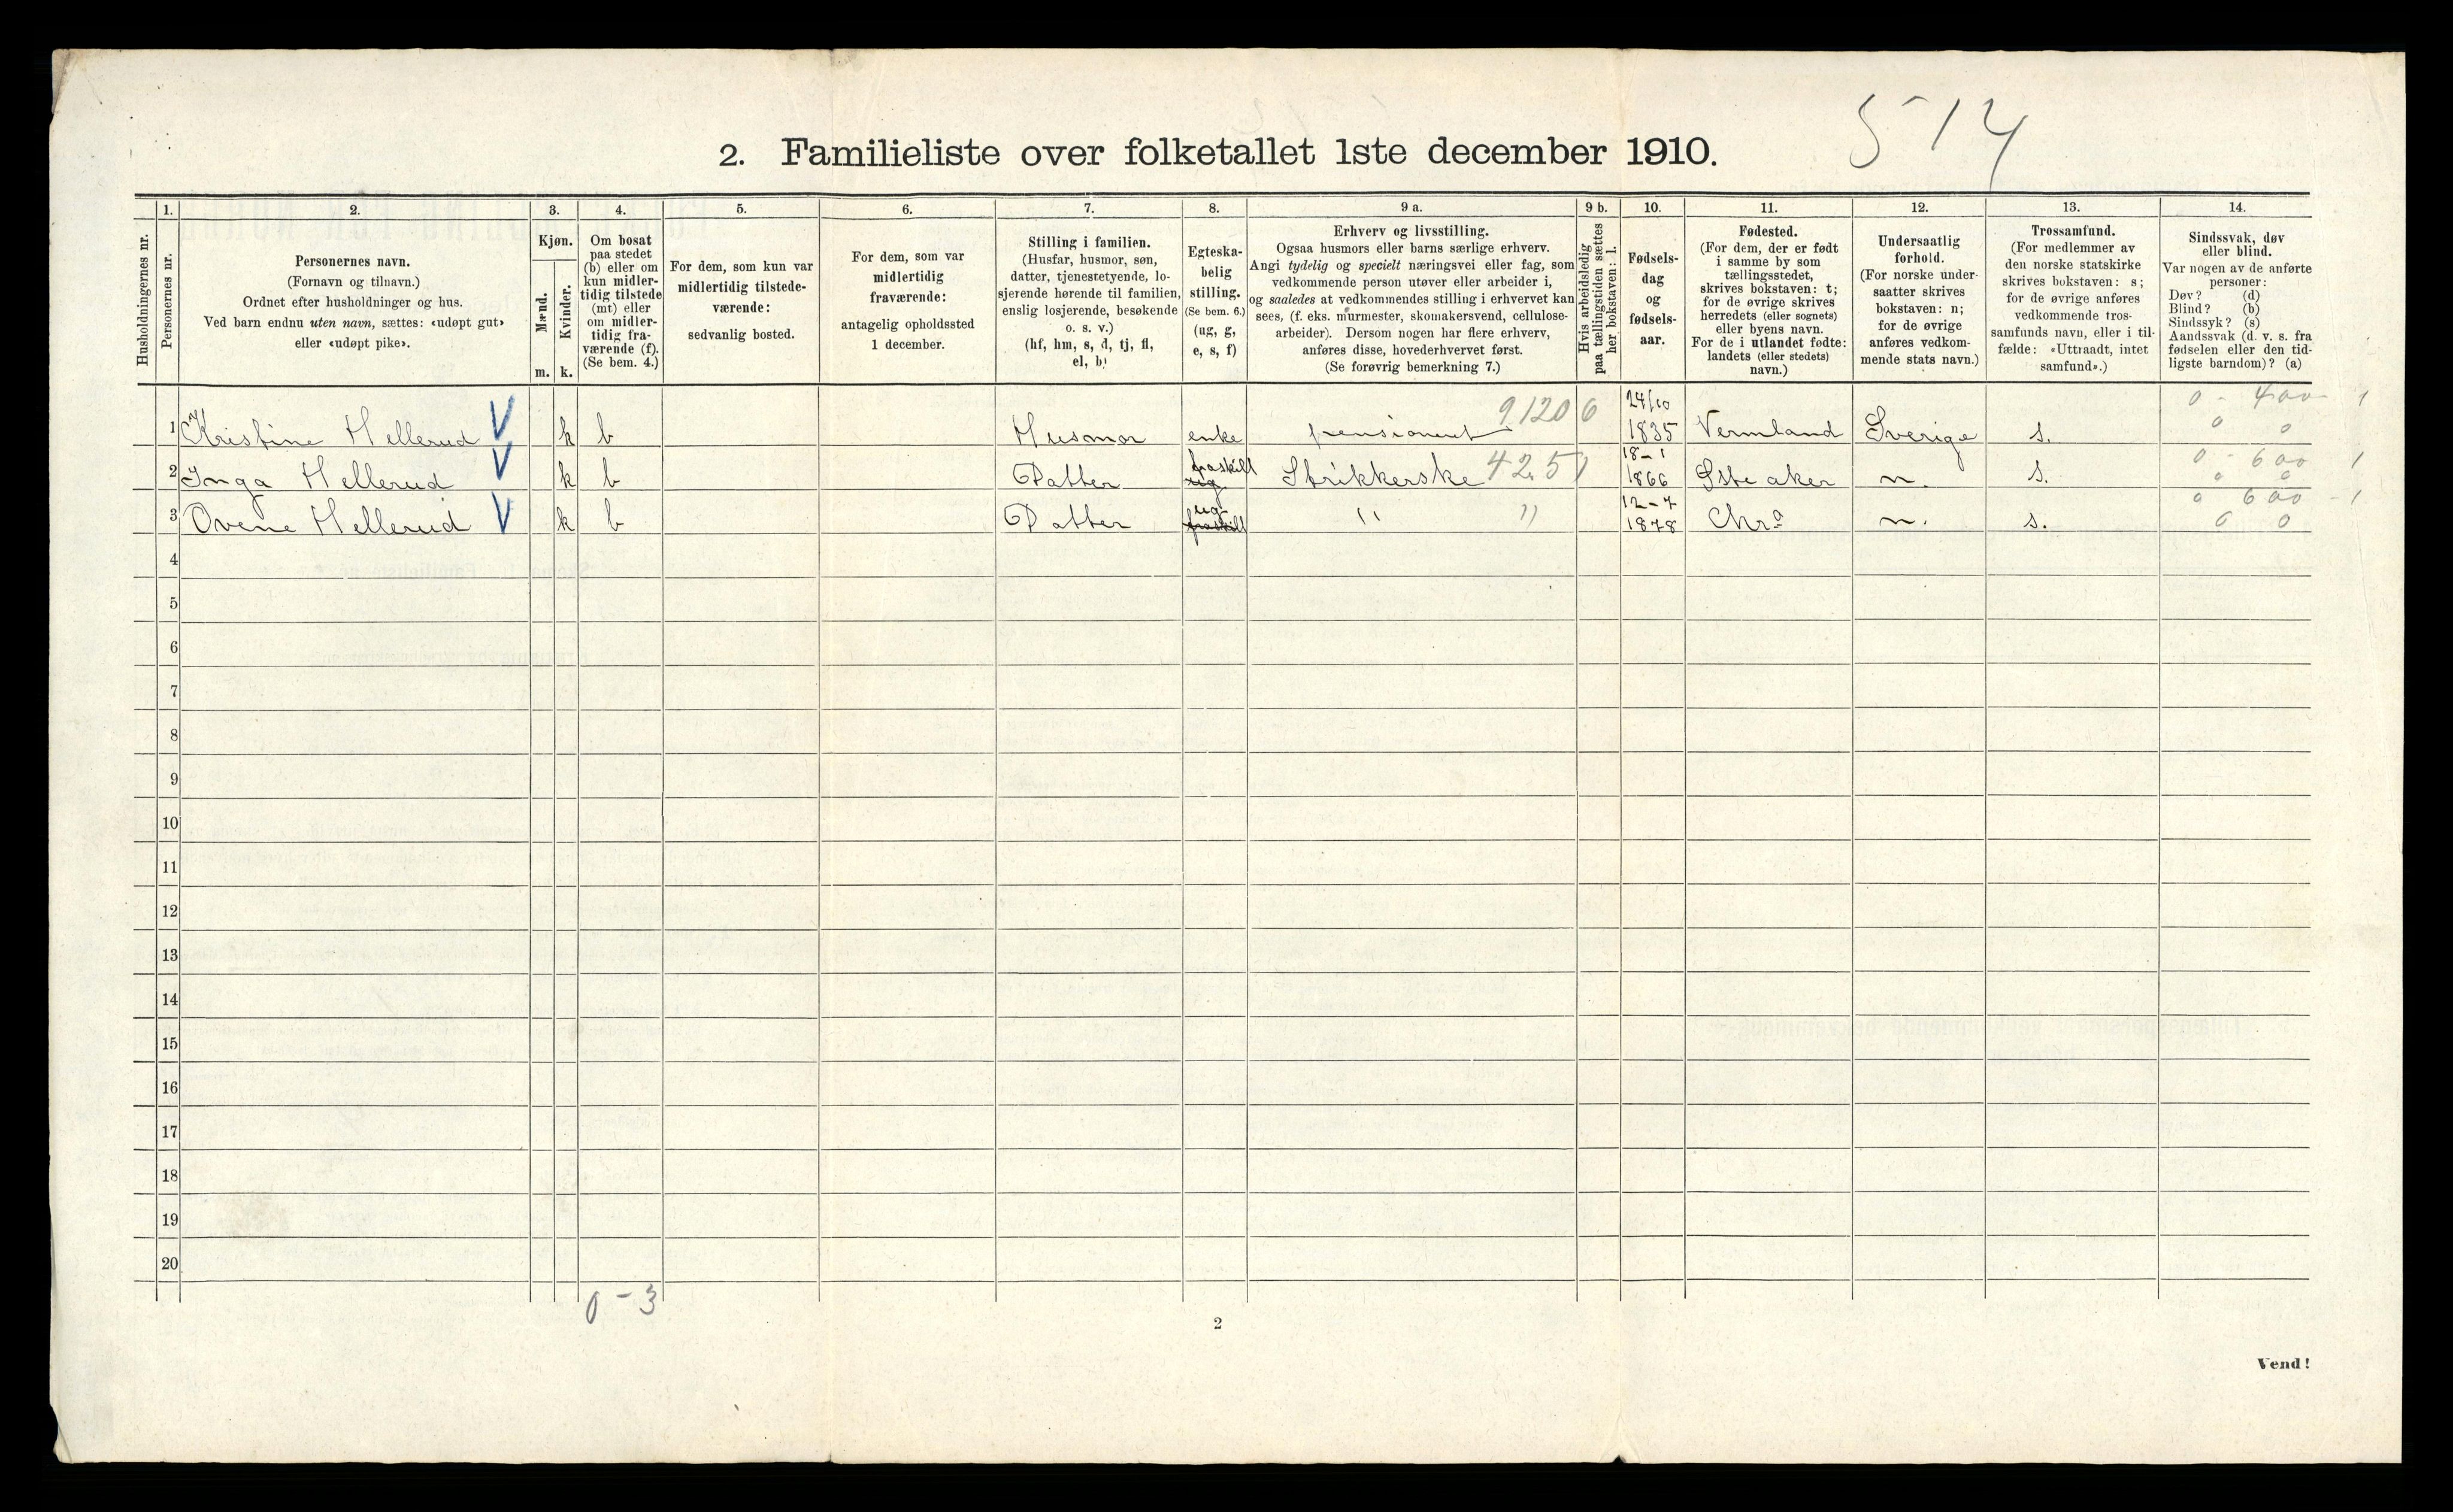 514
2. Familieliste over folketallet 1ste december 1910.
Husholdningernes nr.
1.
Personernes nr.
2.
Personernes navn.
(Fornavn og tilnavn.)
Ordnet efter husholdninger og hus.
Ved barn endnu uten navn, sættes: «udøpt gut»
eller «udøpt pike».
3.
Kjøn.
Mænd.
Kvinder.
m. k.
4.
Om bosat
paa stedet
(b) eller om
kun midler-
tidig tilstede
(mt) eller
om midler-
tidig fra-
værende (f).
(Se bem. 4.)
5.
For dem, som kun var
midlertidig tilstede-
værende:
sedvanlig bosted.
6.
For dem, som var
midlertidig
fraværende:
antagelig opholdssted
1 december.
7.
Stilling i familien.
(Husfar, husmor, søn,
datter, tjenestetyende, lo-
sjerende hørende til familien,
enslig losjerende, besøkende
o. s. v.)
(hf, hm, s, d, tj, fl,
el, b)
8.
Egteska-
belig
stilling.
(Se bem. 6.)
(ug, g,
e, s, f)
9 a.
Erhverv og livsstilling.
Ogsaa husmors eller barns særlige erhverv.
Angi tydelig og specielt næringsvei eller fag, som
vedkommende person utøver eller arbeider i,
og saaledes at vedkommendes stilling i erhvervet kan
sees, (f. eks. murmester, skomakersvend, cellulose-
arbeider). Dersom nogen har flere erhverv,
anføres disse, hovederhvervet først.
(Se forøvrig bemerkning 7.)
9 b.
Hvis arbeidsledig
paa tællingstiden sættes
her bokstaven: l.
10.
Fødsels-
dag
og
fødsels-
aar.
11.
Fødested.
(For dem, der er født
i samme by som
tællingsstedet,
skrives bokstaven: t;
for de øvrige skrives
herredets (eller sognets)
eller byens navn.
For de i utlandet fødte:
landets (eller stedets)
navn.)
12.
Undersaatlig
forhold.
(For norske under-
saatter skrives
bokstaven: n;
for de øvrige
anføres vedkom-
mende stats navn.)
13.
Trossamfund.
(For medlemmer av
den norske statskirke
skrives bokstaven: s;
for de øvrige anføres
vedkommende tros-
samfunds navn, eller i til-
fælde: «Uttraadt, intet
samfund».)
14.
Sindssvak, døv
eller blind.
Var nogen av de anførte
personer:
Døv? (d)
Blind? (b)
Sindssyk? (s)
Aandssvak (d. v. s. fra
fødselen eller den tid-
ligste barndom)? (a)
9120 6 24/10 0 - 400 - 1
1 Kristine Hellerud V k b Husmor enke pensionert 1835 Vermland Sverige s. 0 0
fraskilt 18-1 0 - 600 1
2 Inga Hellerud V k b Datter ug Strikkerske 4251 1866 Østre aker n. s. 0 0
ug. 12-7 0 600 - 1
3 Ovene Hellerud V k b Datter fraskilt " " 1878 Chra n. s. 0 0
4
5
6
7
8
9
10
11
12
13
14
15
16
17
18
19
20
0 - 3
2
Vend!